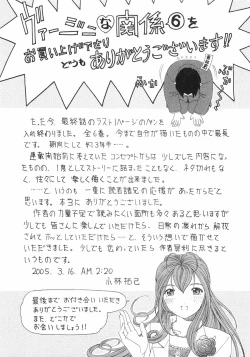 ヴァージンな関係⑥を
お買い上げ下さり
どうも
ありがとうございます!!
たった今、最終話のラスト1ページのペン
入れ終わりました。全6巻。今まで自分が描いたものの中で最長
です。期間にして約3年半…。
連載開始前に考えていたコンセプトからは少しズレた内容になっ
たものの、1度としてストーリーに詰まったこともなく、ネタ切れもな
く、往々にして楽しく働くことが出来ました。
……というのも一重に読者諸兄の応援があったからだと
思います。本当にありがとうございました。
作者の力量不足で読みにくい箇所も多々あると思いますが
少しでも皆さんに楽しんでいただけたら、日頃の疲れから解放
されてホッとしていただけたら……と、そういう想いで描かせて
いただきました。少しでも広っていたら作者冥利に尽きると
いうものです。
2005. 3. 16. AM 2:20
小林拓己
最後までお付き合いいただき
ありがとうございました。
また、どこかで
お会いしましょう!!